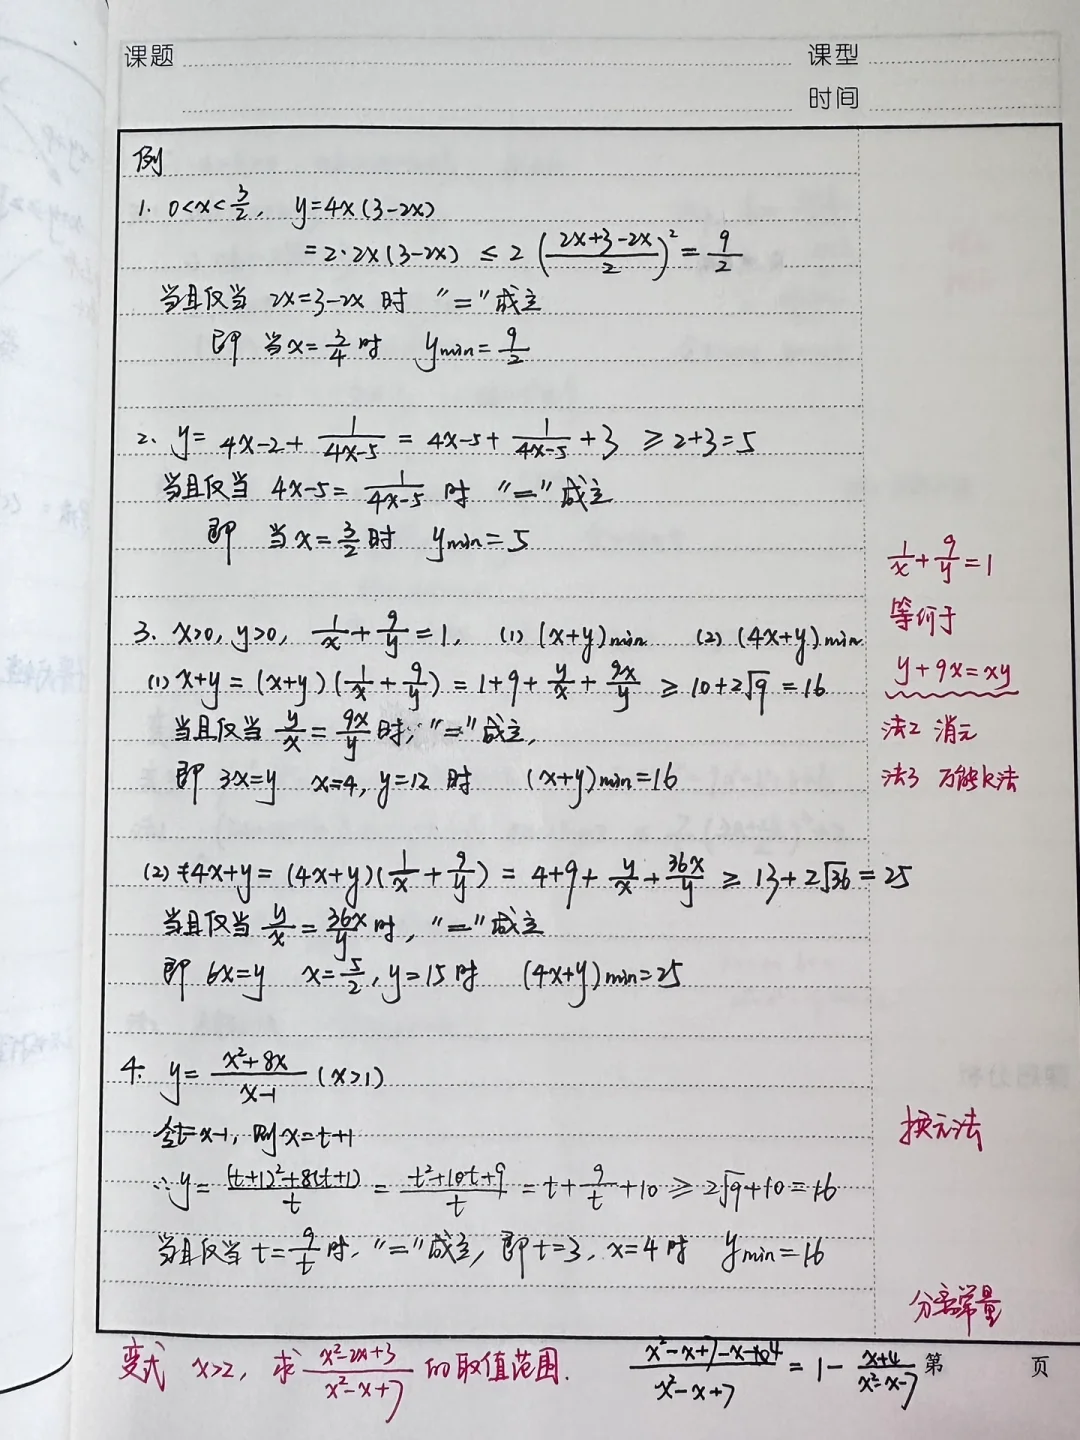 课题
课型
时间
例
1. 0<x<3/2, y=4x(3-2x)
=2·2x(3-2x) ≤ 2((2x+3-2x)/2)² = 9/2
当且仅当 2x=3-2x 时 "="成立
即 当x=3/4时 ymin=9/2
2. y= 4x-2+1/(4x-5) = 4x-5+1/(4x-5)+3 ≥2+3=5
当且仅当 4x-5=1/(4x-5) 时 "="成立
即 当x=3/2时 ymin=5
1/x+9/y=1
等价于
y+9x=xy
法2 消元
法3 万能k法
3. x>0, y>0, 1/x+9/y=1, (1) (x+y)min (2) (4x+y)min
(1) x+y=(x+y)(1/x+9/y)=1+9+y/x+9x/y ≥10+2√9=16
当且仅当 y/x=9x/y 时, "="成立,
即 3x=y x=4, y=12 时 (x+y)min=16
(2) 4x+y=(4x+y)(1/x+9/y)=4+9+y/x+36x/y ≥ 13+2√36=25
当且仅当 y/x=36x/y 时, "="成立
即 6x=y x=5/2, y=15时 (4x+y)min=25
4. y=(x²+8x)/(x-1) (x>1)
令t=x-1, 则x=t+1
换元法
∴y=((t+1)²+8(t+1))/t=(t²+10t+9)/t=t+9/t+10≥2√9+10=16
当且仅当 t=9/t 时, "="成立, 即t=3, x=4时 ymin=16
分离常量
变式 x>2, 求 (x²-2x+3)/(x²-x+7) 的取值范围.
=1-(x+4)/(x²-x-7)
第 页